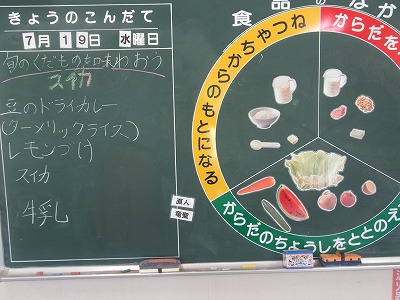 きょうのこんだて
7月19日 水曜日
旬のくだものを味わおう
スイカ
豆のドライカレー
(ターメリックライス)
レモンづけ
スイカ
牛乳
直人
竜聖
食品のなか
からだを
ちからやねつのもとになる
からだのちょうしをととのえ